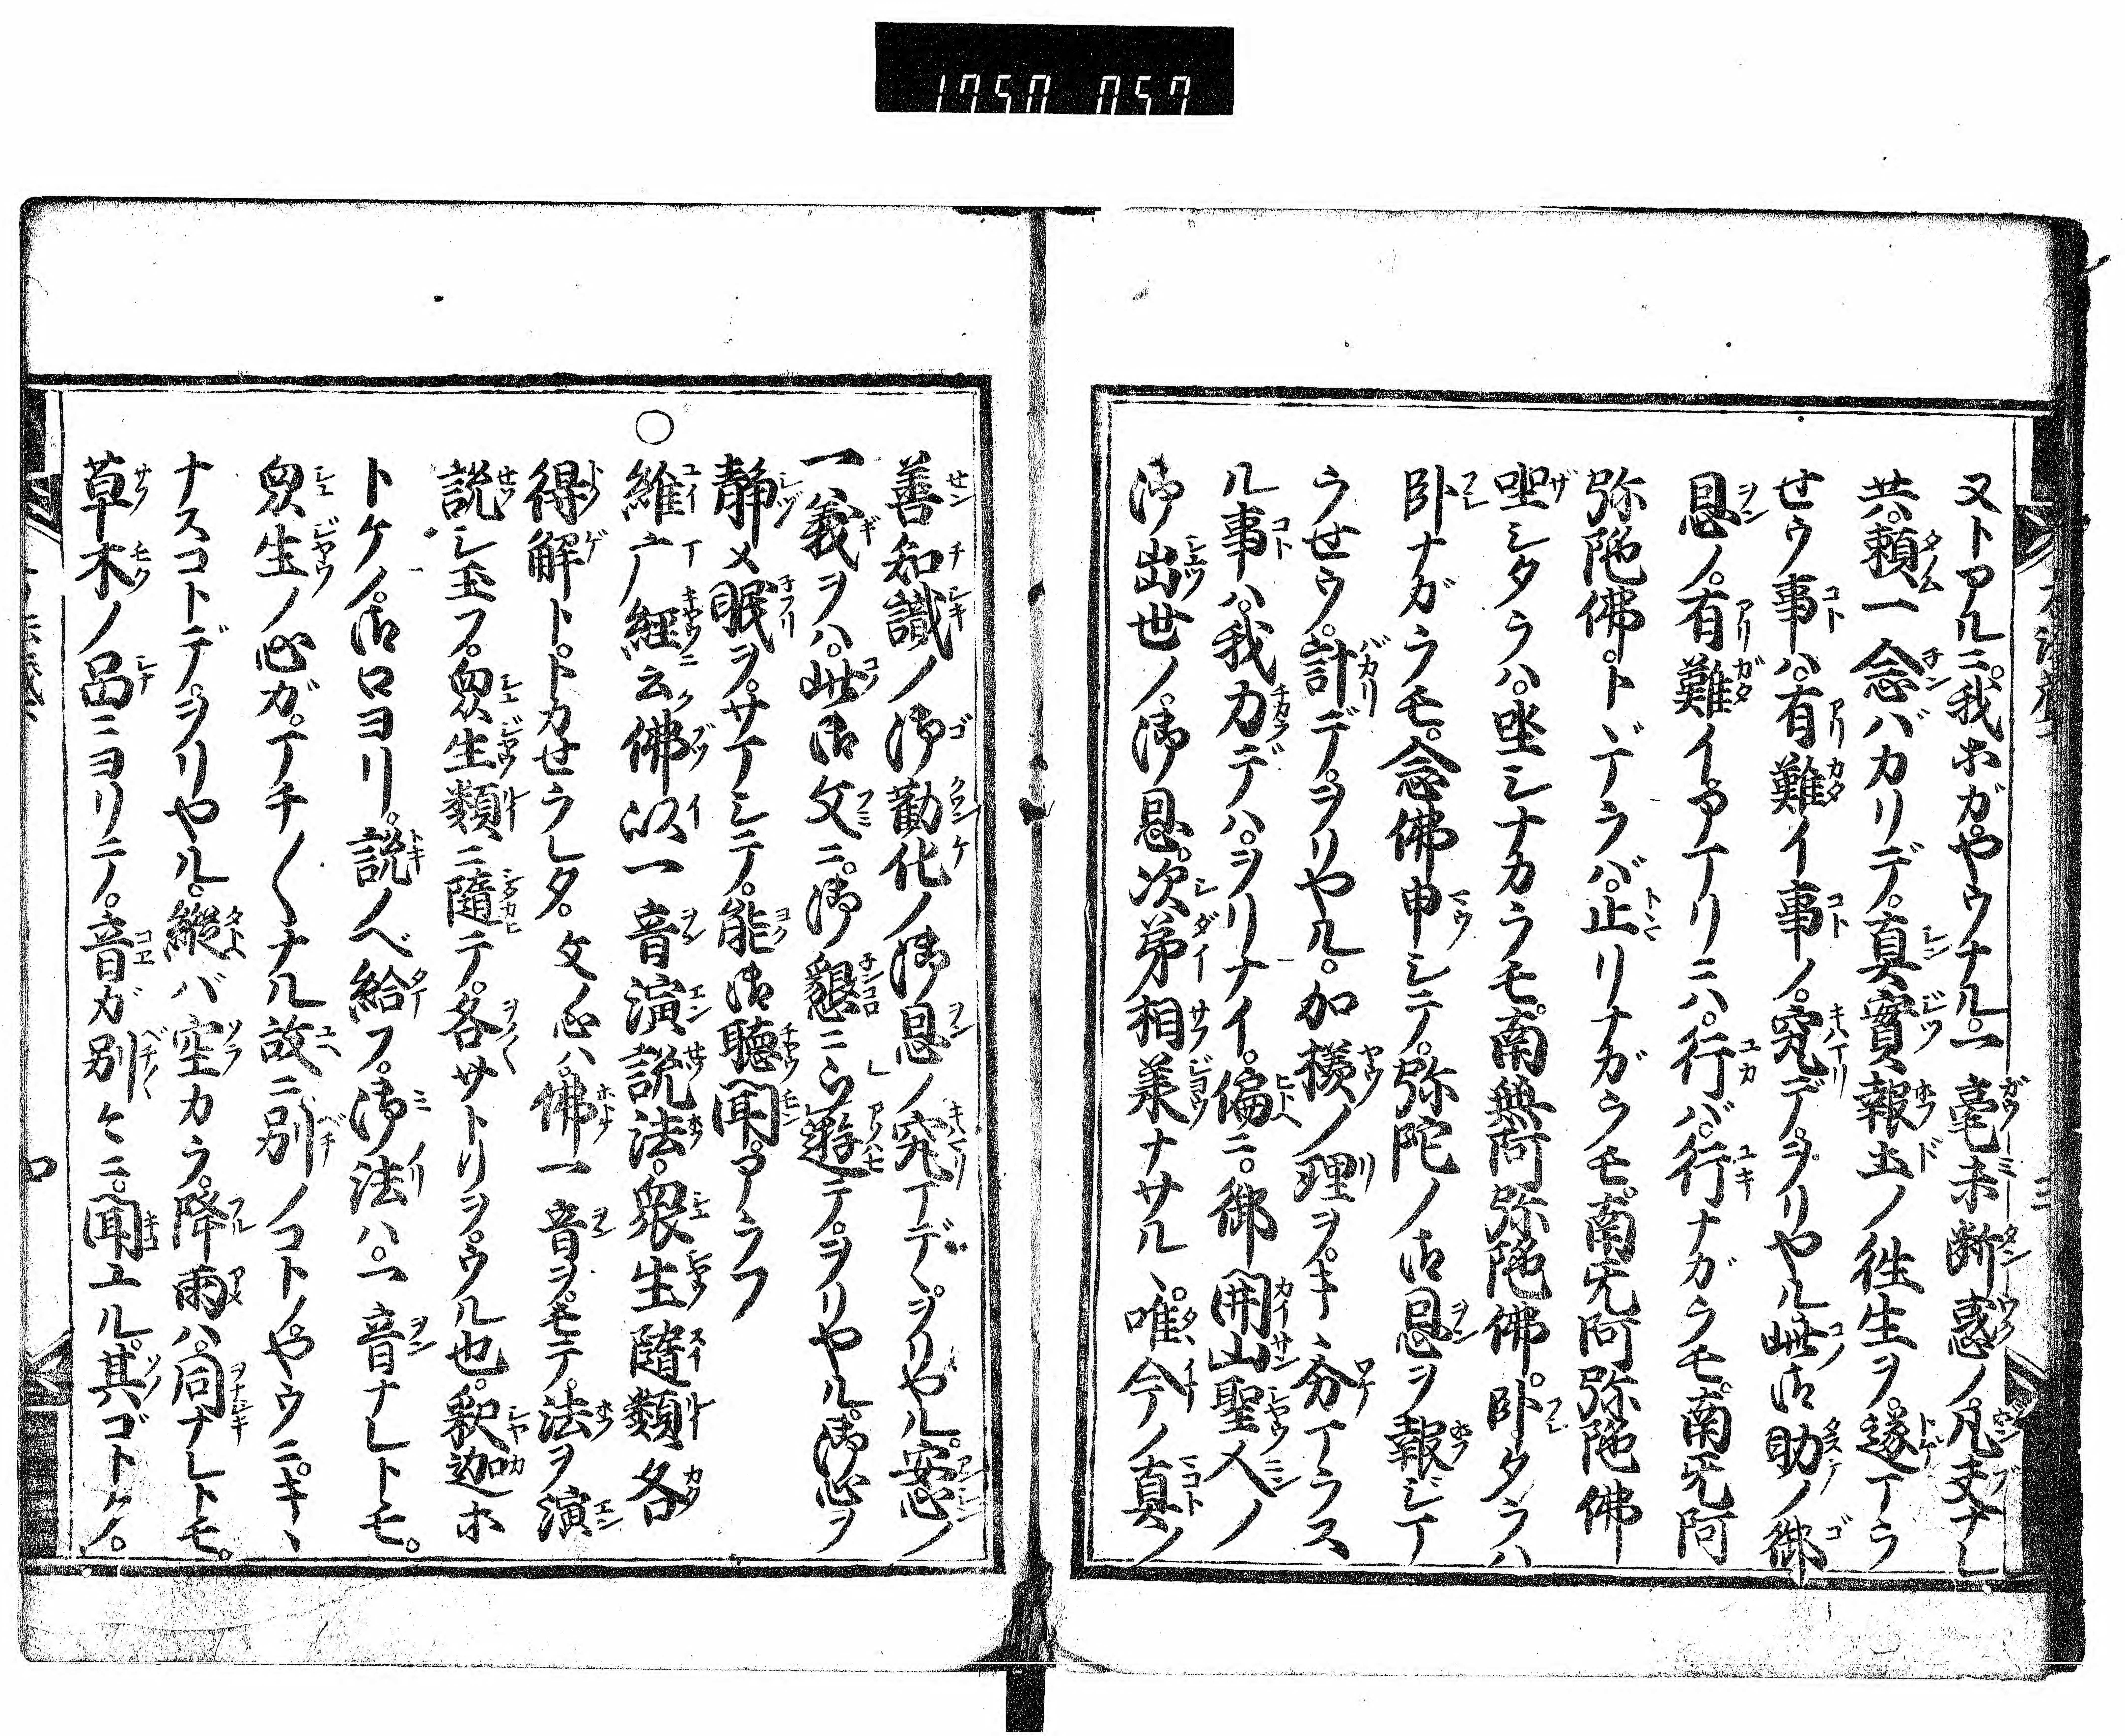 1750 057
又トアルニ。我ホガ。ヤウナル。一毫未断惑ノ。凡夫ナレ
共。頼一念バカリデ。真實報土ノ徃生ヲ。遂イラ
せウ事ハ。有難イ事ノ。究デ。ヲリヤル此御助ノ御
恩ノ。有難イアイリニハ。行バ。行ナガラモ。南无阿
弥陁佛。トヾテラバ。止リナガラモ。南无阿弥陁佛
坐シタラハ。坐シナカラモ。南無阿弥陁佛。臥タラハ
臥ナガラモ。念佛申シテ。弥陀ノ御恩ヲ報ジイ
ウせウ。計デ。ヲリヤル。加様ノ理ヲ。キヽ分イラス
ル事ハ。我力デハ。ヲリナイ。偏ニ。御開山聖人ノ
御出世ノ。御恩。次第相羕ナサルヽ。唯今ノ真ノ
善知識ノ御勸化ノ御恩ノ究イデ。ヲリヤル。安心ノ
一義ヲハ。此御文ニ。御懇ニ遊テ。ヲリヤル。御心ヲ
靜メ眠ヲ。サイシテ。能御聴聞。アラフ
○維广經云佛以一音演説法。衆生隨類各
得解ト。トカせラレタ。文ノ心ハ。佛一音ヲ。モテ。法ヲ演
説シ玉フ。衆生類ニ隨テ。各サトリヲ。ウル也。釈迦ホ
トケノ。御口ヨリ。説ノベ給フ。御法ハ。一音ナレトモ。
衆生ノ心ガ。イチ〱ナル故ニ別ノコトノ。ヤウニ。キヽ
ナスコトデ。ヲリヤル。縱バ空カラ。降雨ハ。同ナレトモ。
草木ノ品ニヨリテ。音ガ別ケニ。聞ユル。其ゴトク。